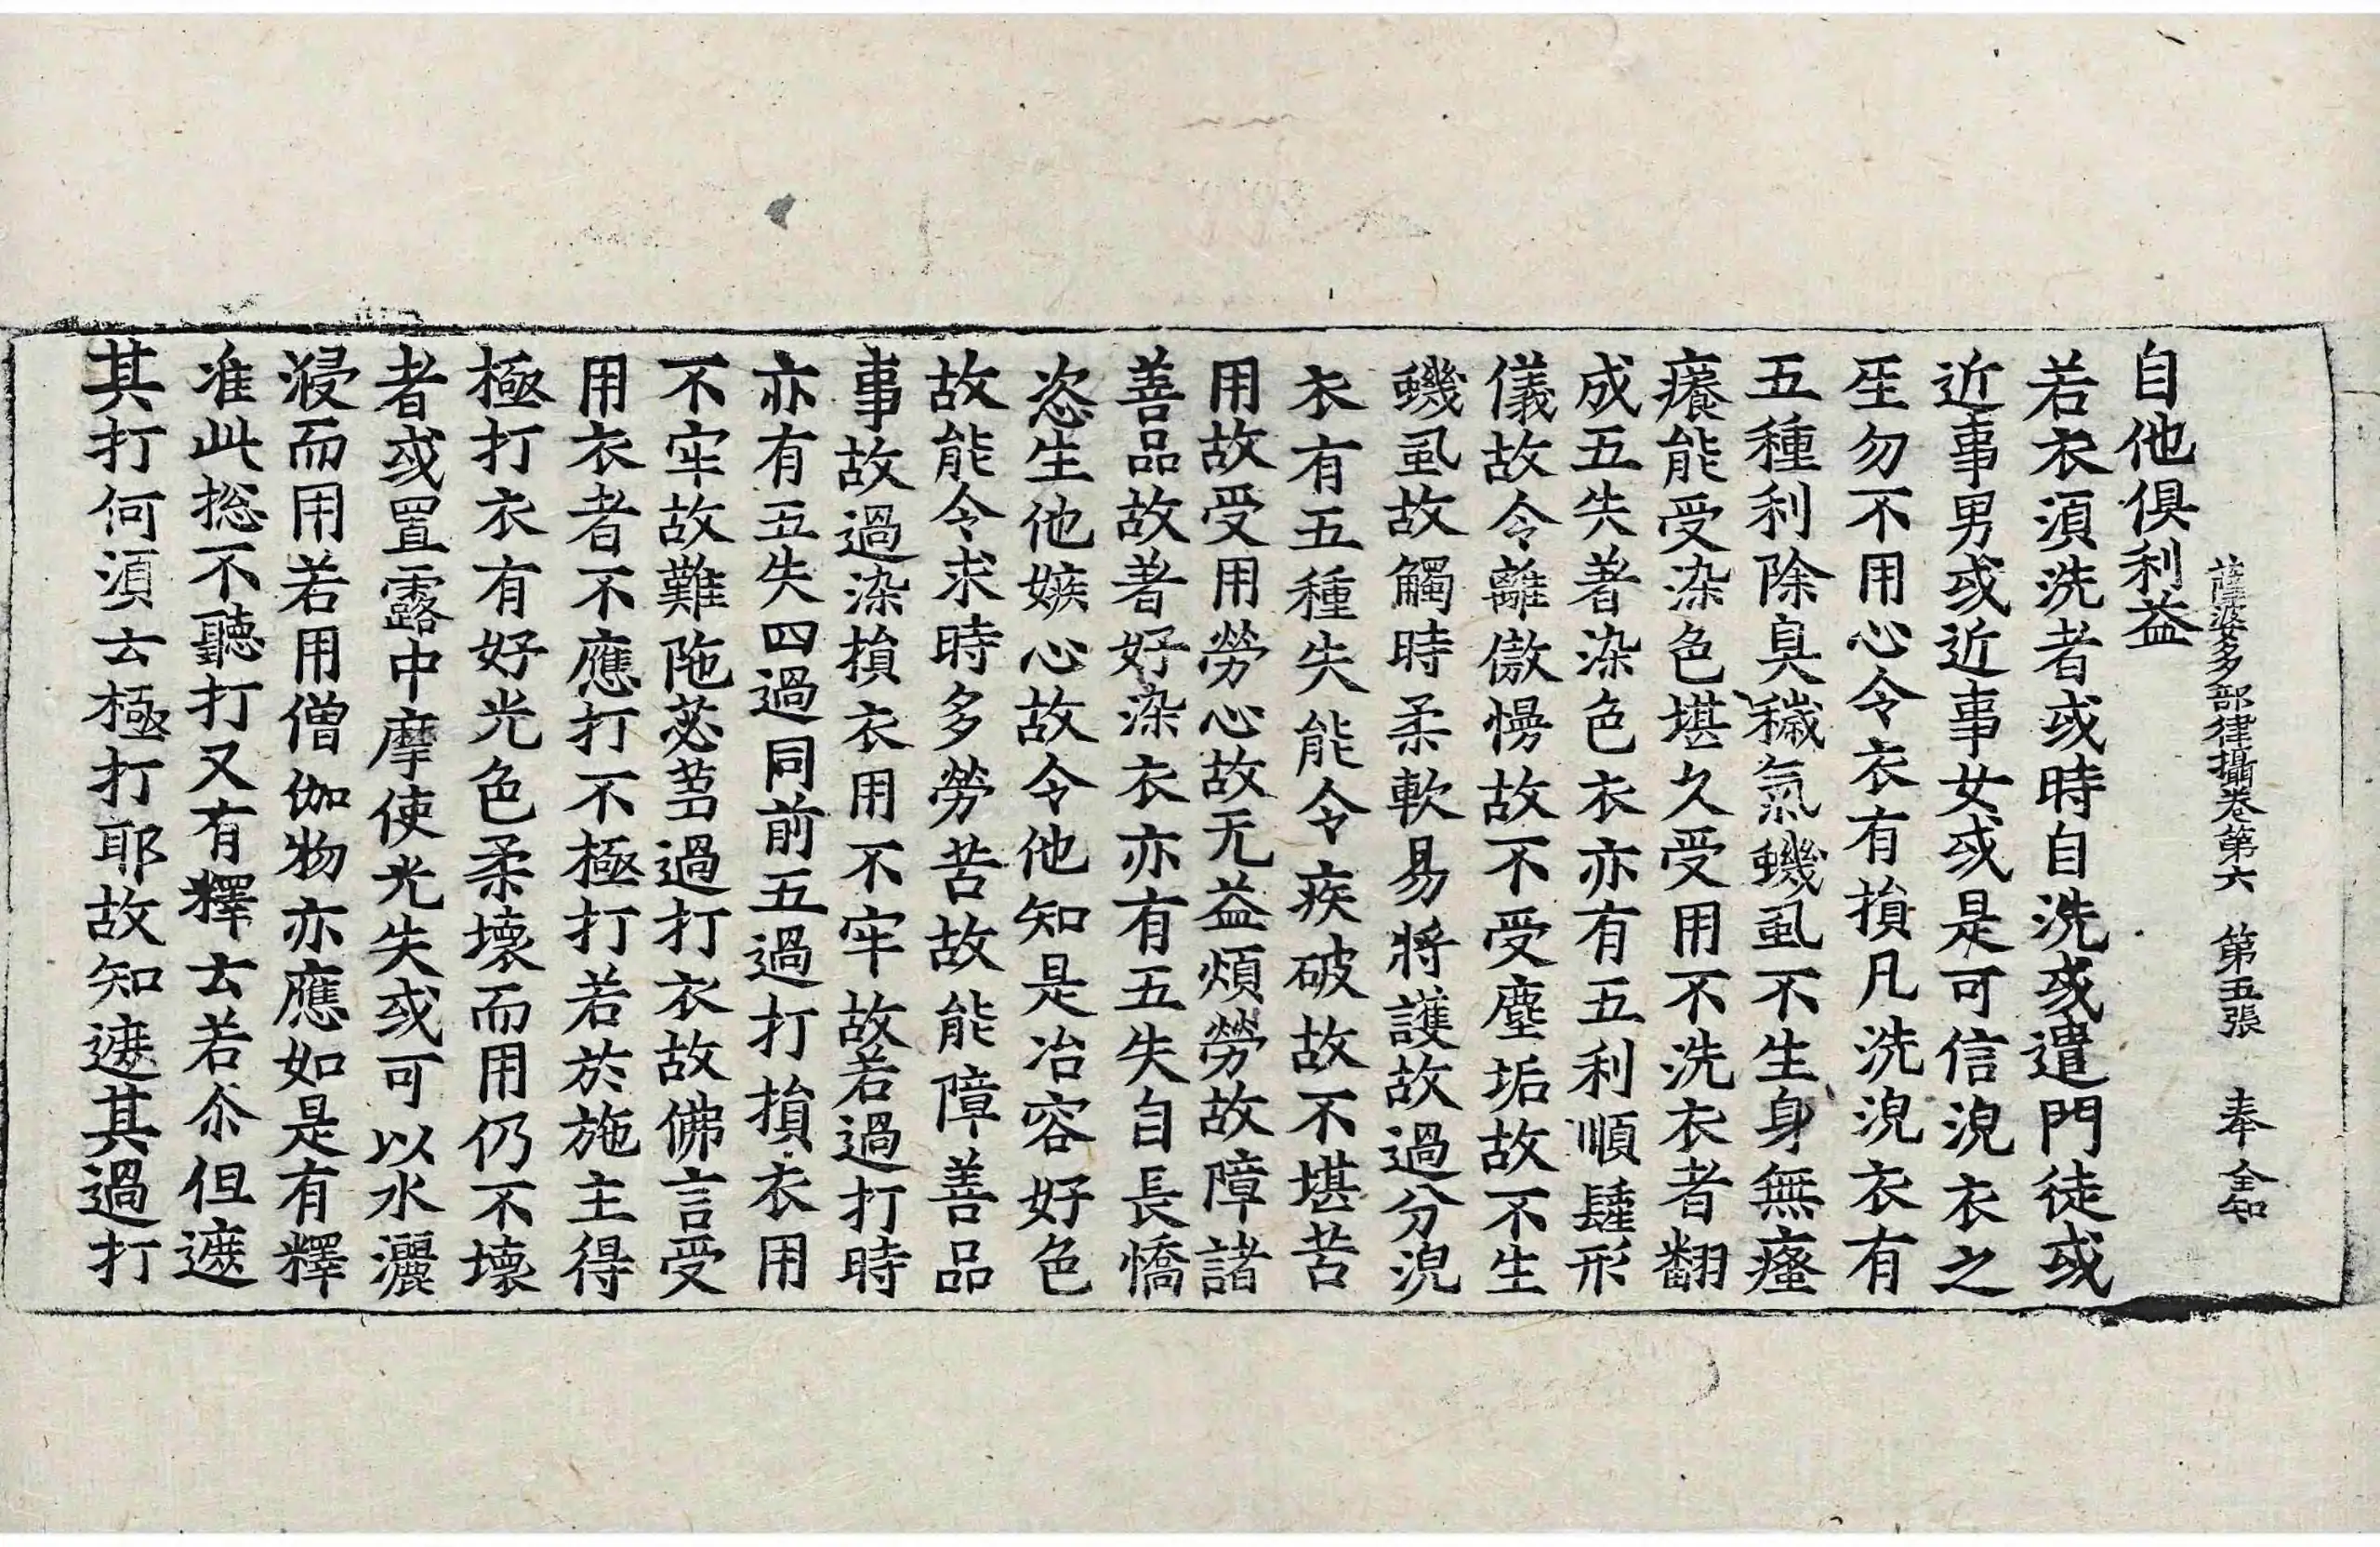 薩婆多部律攝卷第六 第五張 奉 全知
自他俱利益
若衣湏洗者或時自洗或遣門徒或
近事男或近事女或是可信浣衣之
𤯔勿不用心令衣有損凡洗浣衣有
五種利除臭穢氣蟣虱不生身無瘙
癢能受染色堪久受用不洗衣者翻
成五失著染色衣亦有五利順肂形
儀故令離傲慢故不受塵垢故不生
蟣虱故觸時柔軟易將護故過分浣
衣有五種失能令疾破故不堪苦
用故受用勞心故无益煩勞故障諸
善品故著好染衣亦有五失自長憍
恣生他嫉心故令他知是冶容好色
故能令求時多勞苦故能障善品
事故過染損衣用不牢故若過打時
亦有五失四過同前五過打損衣用
不牢故難陁苾芻過打衣故佛言受
用衣者不應打不極打若於施主得
極打衣有好光色柔壞而用仍不壞
者或置露中摩使光失或可以水灑
浸而用若用僧伽物亦應如是有釋
准此捴不聽打又有釋云若尒但遮
其打何湏云極打耶故知遮其過打